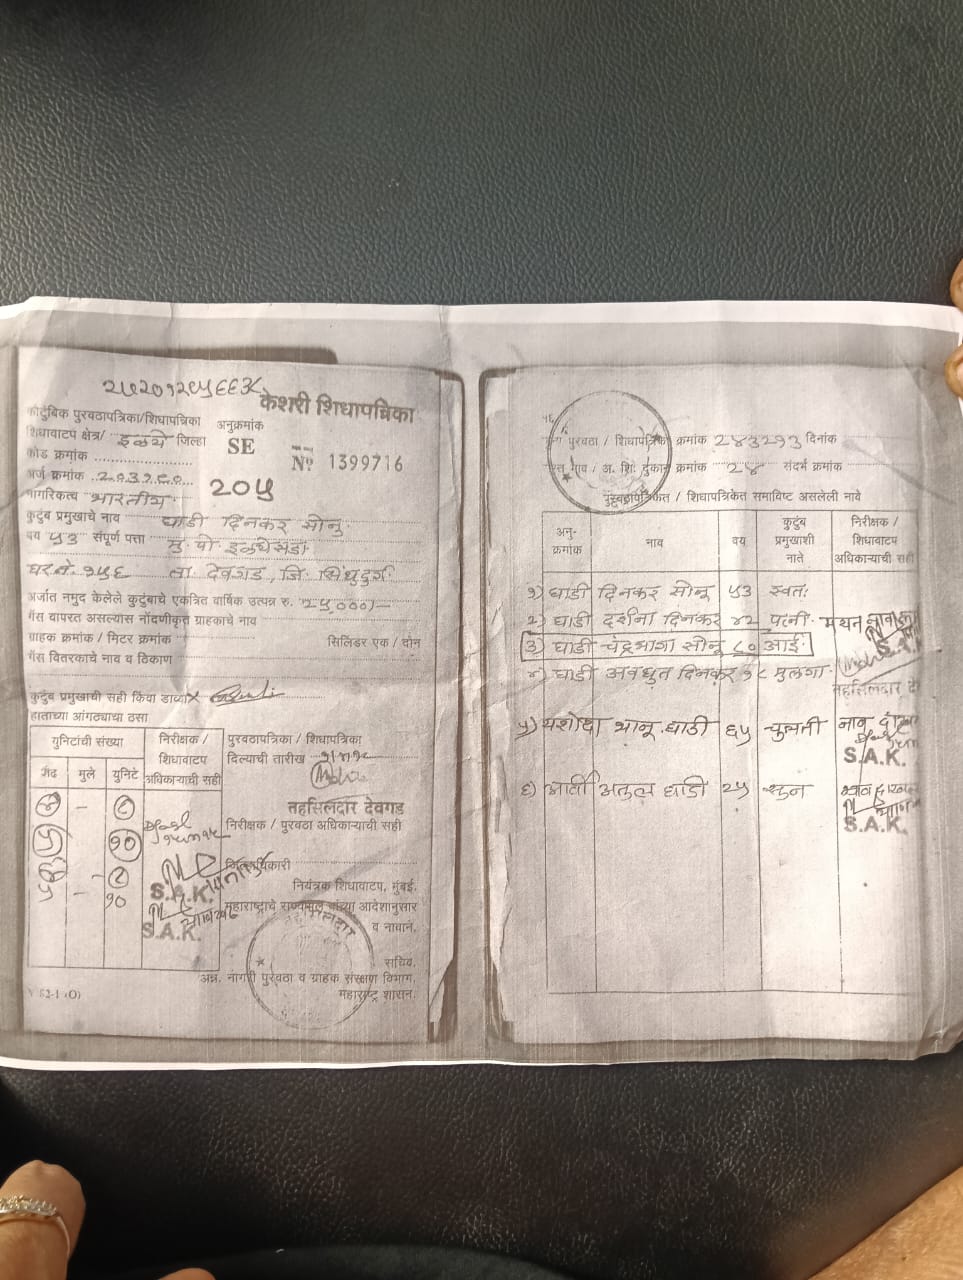 केशरी शिधापत्रिका
कौटुंबिक पुरवठापत्रिका/शिधापत्रिका
अनुक्रमांक
शिधावाटप क्षेत्र/ इळये जिल्हा
SE
Nº 1399716
कोड क्रमांक
अर्ज क्रमांक
२०५
नागरिकत्व भारतीय
कुटुंब प्रमुखाचे नाव घाडी दिनकर सोनू
वय ५३ संपूर्ण पत्ता मु. पो. इळयेसडा
घर नं. १५६ ता. देवगड, जि. सिंधुदुर्ग
अर्जात नमुद केलेले कुटुंबाचे एकत्रित वार्षिक उत्पन्न रु. २५,०००/-
गॅस वापरत असल्यास नोंदणीकृत ग्राहकाचे नाव
ग्राहक क्रमांक / मिटर क्रमांक सिलिंडर एक / दोन
गॅस वितरकाचे नाव व ठिकाण
कुटुंब प्रमुखाची सही किंवा डाव्या
हाताच्या आंगठ्याचा ठसा
युनिटांची संख्या
निरीक्षक /
शिधावाटप
अधिकाऱ्याची सही
प्रौढ मुले युनिटे
८
१०
८
५ - १०
S.A.K.
S.A.K.
पुरवठापत्रिका / शिधापत्रिका
दिल्याची तारीख
तहसिलदार देवगड
निरीक्षक / पुरवठा अधिकाऱ्याची सही
जिल्हाधिकारी
नियंत्रक शिधावाटप, मुंबई.
महाराष्ट्राचे राज्यपाल यांच्या आदेशानुसार
व नावाने,
सचिव,
अन्न, नागरी पुरवठा व ग्राहक संरक्षण विभाग,
महाराष्ट्र शासन.
पुरवठा / शिधापत्रिका क्रमांक २४३२१३ दिनांक
गाव / अ. शि. दुकान क्रमांक २४ संदर्भ क्रमांक
पुरवठापत्रिकेत / शिधापत्रिकेत समाविष्ट असलेली नावे
अनु-
क्रमांक
नाव
वय
कुटुंब
प्रमुखाशी
नाते
निरीक्षक /
शिधावाटप
अधिकाऱ्याची सही
१) घाडी दिनकर सोनू ५३ स्वतः
२) घाडी दर्शना दिनकर ४२ पत्नी
३) घाडी चंद्रभागा सोनू ८० आई
४) घाडी अवधुत दिनकर १८ मुलगा
तहसिलदार दे
५) यशोदा भानू घाडी ६५ चुलती
S.A.K.
६) आर्ती अतुल घाडी २५ सून
S.A.K.